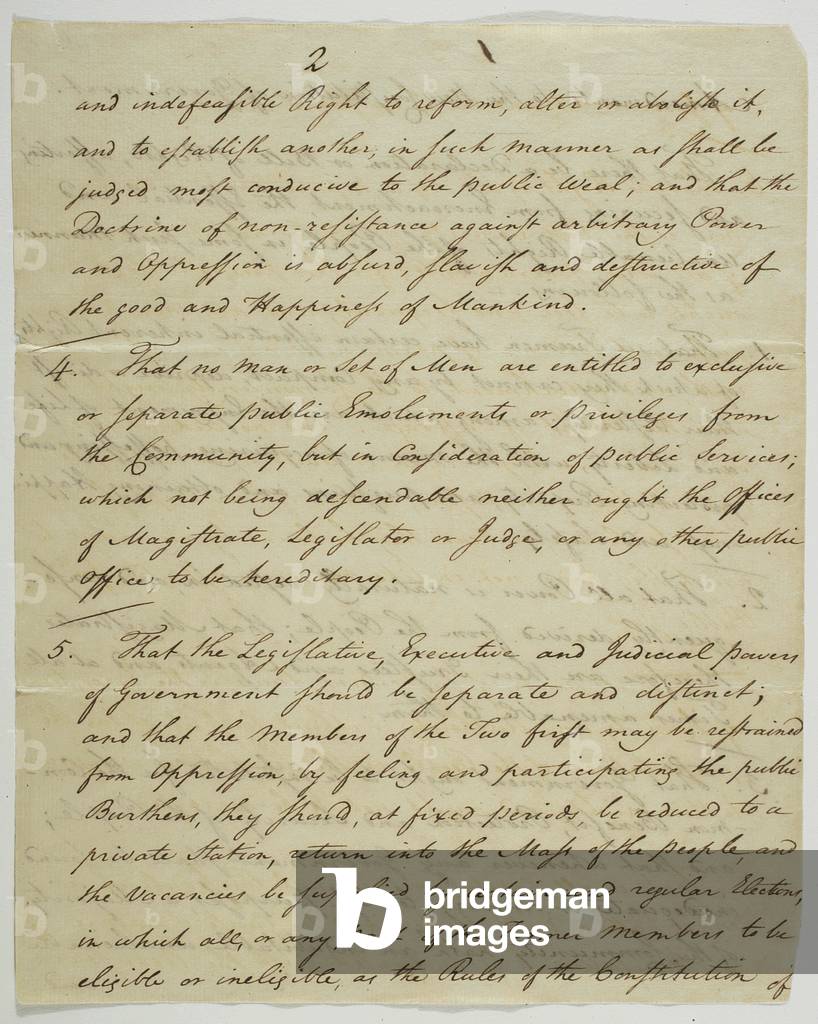 2
and indefeaſible Right to reform, alter or aboliſh it,
and to eſtabliſh another, in ſuch manner as ſhall be
judged moſt conducive to the public Weal; and that the
Doctrine of non-reſiſtance againſt arbitrary Power
and Oppreſſion is abſurd, ſlaviſh and deſtructive of
the good and Happineſs of Mankind.
4. That no man or Set of Men are entitled to excluſive
or ſeparate public Emoluments or privileges from
the Community, but in Conſideration of public Services;
which not being deſcendable neither ought the Offices
of Magiſtrate, Legiſlator or Judge, or any other public
Office, to be hereditary.
5. That the Legiſlative, Executive and Judicial powers
of Government ſhould be ſeparate and diſtinct;
and that the Members of the Two firſt may be reſtrained
from Oppreſſion, by feeling and participating the public
Burthens, they ſhould, at fixed periods, be reduced to a
private Station, return into the Maſs of the people, and
the vacancies be regular Elections,
in which all, or any Members to be
eligible or ineligible, as the Rules of the Conſtitution of
b bridgeman
images